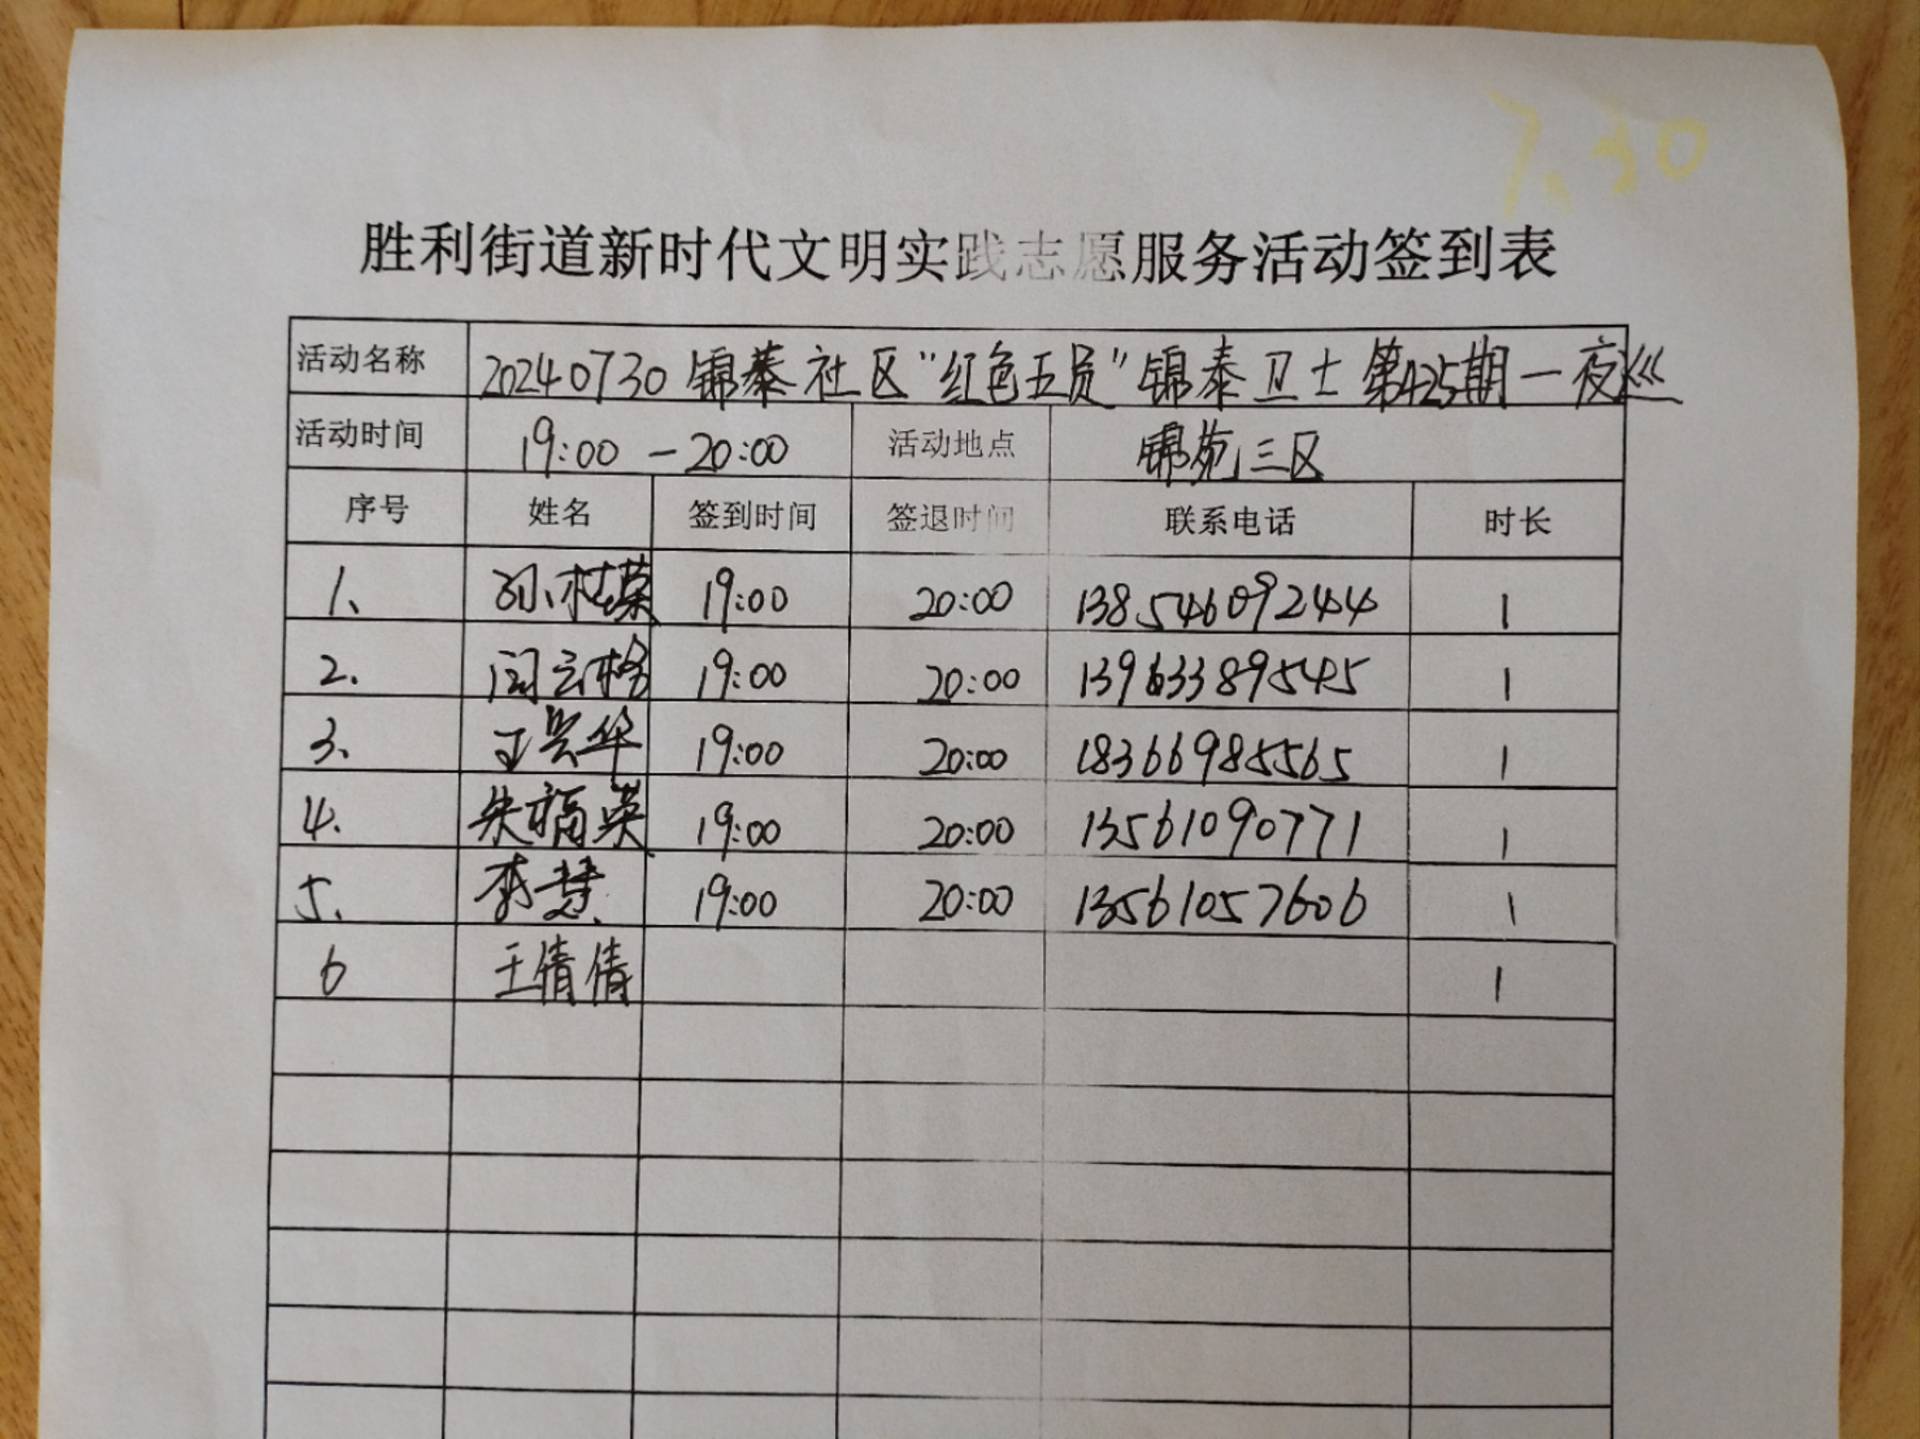 7.30
胜利街道新时代文明实践志愿服务活动签到表
活动名称 20240730锦泰社区"红色五员"锦泰卫士第425期一夜巡
活动时间 19:00-20:00 活动地点 锦苑三区
序号 姓名 签到时间 签退时间 联系电话 时长
1、 孙桂荣 19:00 20:00 13854609244 1
2. 闫云格 19:00 20:00 13963389545 1
3、 王兴华 19:00 20:00 18366985565 1
4. 朱福英 19:00 20:00 13561090771 1
5. 李慧 19:00 20:00 13561057606 1
6 王倩倩 1